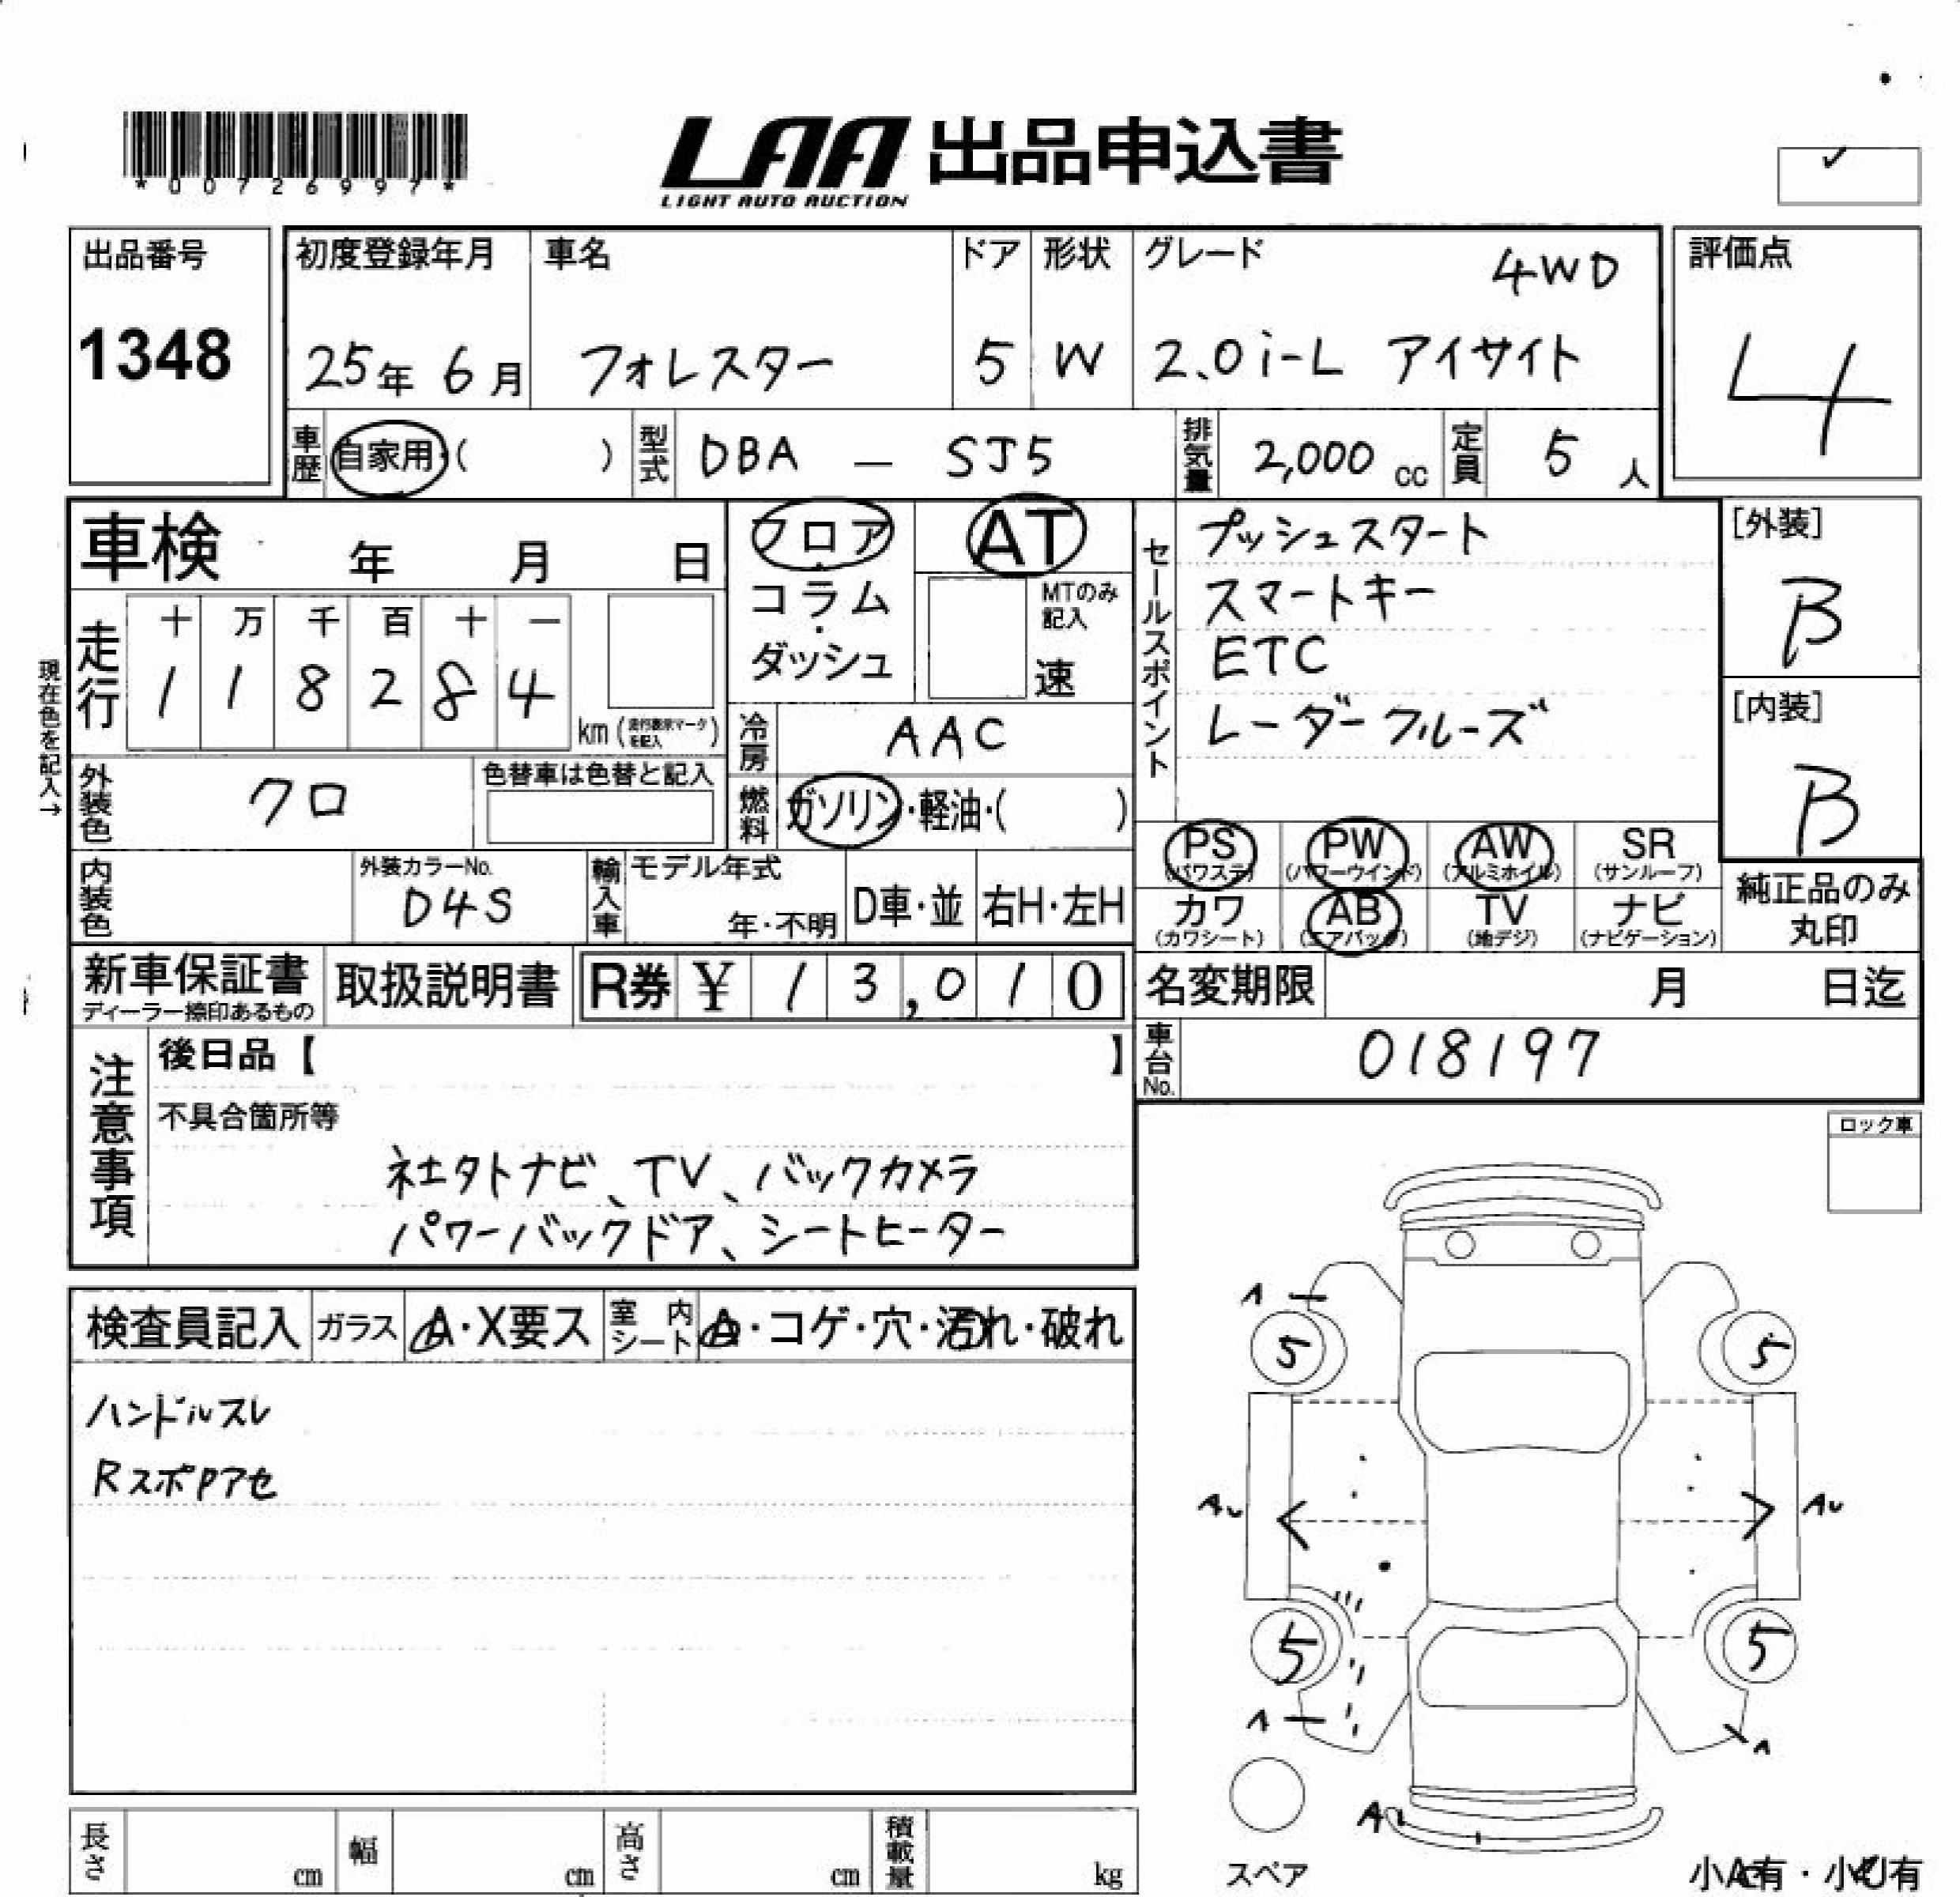 *00726997*
LAA 出品申込書
LIGHT AUTO AUCTION
✓
出品番号
1348
初度登録年月
25年 6月
車名
フォレスター
ドア
5
形状
W
グレード
4WD
2.0i-L アイサイト
評価点
4
車歴
自家用・( )
型式
DBA — SJ5
排気量
2,000 cc
定員
5 人
車検 年 月 日
現在色を記入→
走行
十 万 千 百 十 一
1 1 8 2 8 4
km (走行表示マークを記入)
外装色
クロ
色替車は色替と記入
内装色
外装カラーNo.
D4S
輸入車
モデル年式
年・不明
D車・並
右H・左H
フロア
・
コラム
・
ダッシュ
AT
MTのみ
記入
速
冷房
AAC
燃料
ガソリン・軽油・( )
セールスポイント
プッシュスタート
スマートキー
ETC
レーダークルーズ
[外装]
B
[内装]
B
PS
(パワステ)
PW
(パワーウインド)
AW
(アルミホイル)
SR
(サンルーフ)
カワ
(カワシート)
AB
(エアバック)
TV
(地デジ)
ナビ
(ナビゲーション)
純正品のみ
丸印
新車保証書
ディーラー捺印あるもの
取扱説明書
R券 ¥ 1 3 , 0 1 0
名変期限 月 日迄
車台No.
018197
注意事項
後日品【 】
不具合箇所等
社外ナビ、TV、バックカメラ
パワーバックドア、シートヒーター
ロック車
検査員記入
ガラス
A・X要ス
室内シート
・コゲ・穴・汚れ・破れ
ハンドルスレ
RスポPアセ
A
5 5
AU AU
5 5
A A
A
スペア
小A有・小U有
長さ cm
幅 cm
高さ cm
積載量 kg